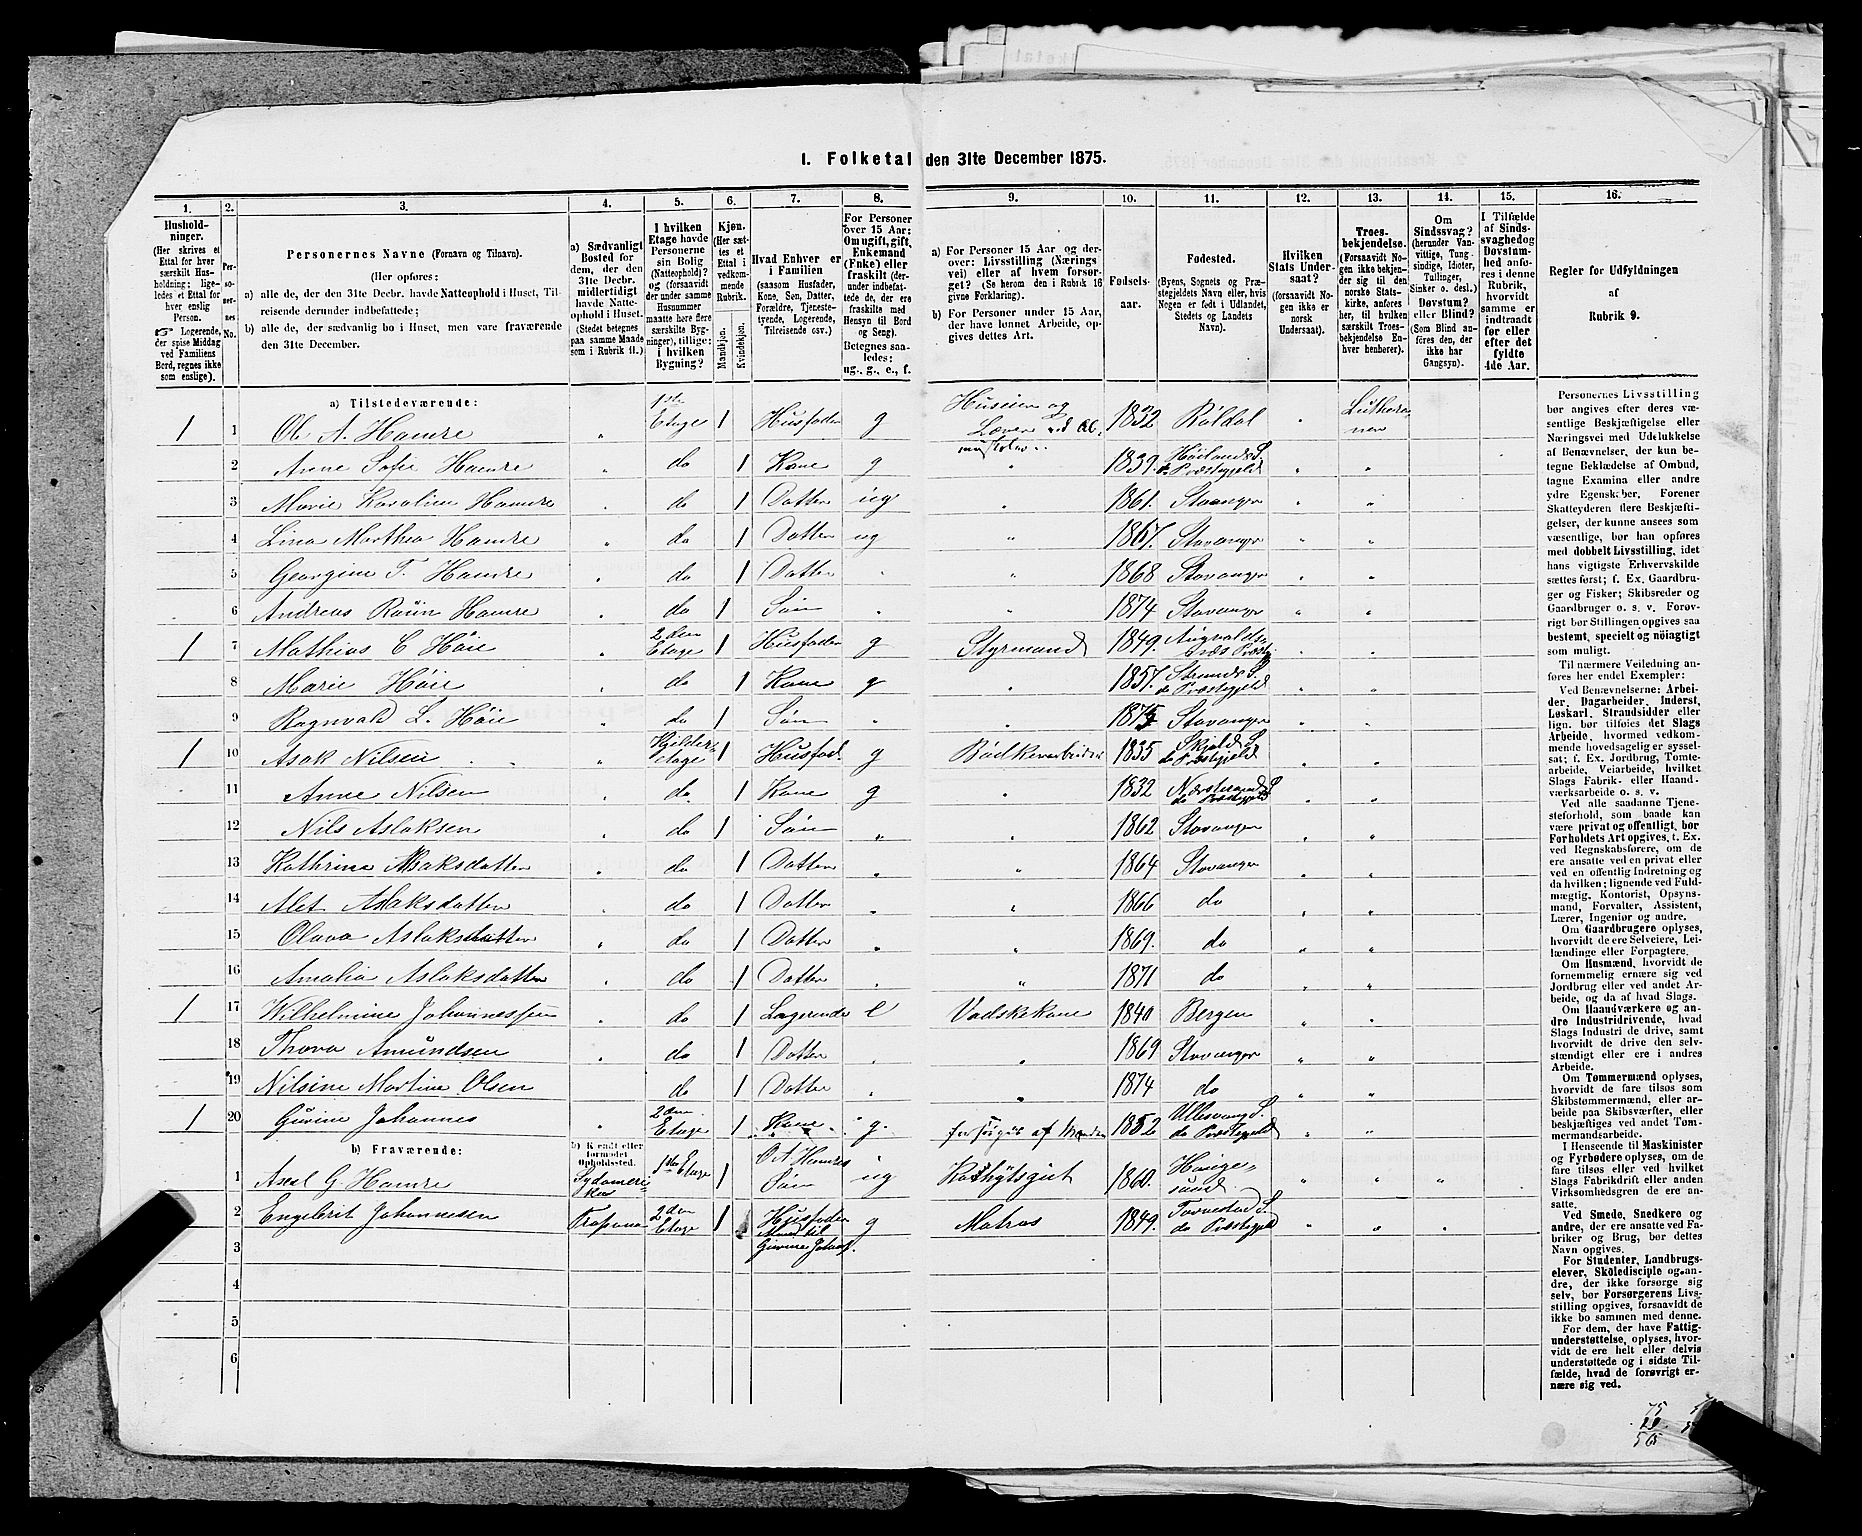 1. Folketal den 31te December 1875.
1. 2. 3. 4. 5. 6. 7. 8. 9. 10. 11. 12. 13. 14. 15. 16.
Hushold-
ninger.
(Her skrives et
Ettal for hver
særskilt Hus-
holdning; lige-
ledes et Ettal for
hver enslig
Person.
☞ Logerende,
der spise Middag
ved Familiens
Bord, regnes ikke
som enslige).
Per-
so-
ner-
nes
No.
Personernes Navne (Fornavn og Tilnavn).
(Her opføres:
a) alle de, der den 31te Decbr. havde Natteophold i Huset, Til-
reisende derunder indbefattede;
b) alle de, der sædvanlig bo i Huset, men vare fraværende
den 31te December.
a) Sædvanligt
Bosted for
dem, der den
31te Decbr.
midlertidigt
havde Natte-
ophold i Huset.
(Stedet betegnes
paa samme Maade
som i Rubrik 11.)
I hvilken
Etage havde
Personerne
sin Bolig
(Natteophold)?
(forsaavidt
der under samme
Husnummer
maatte høre flere
særskilte Byg-
ninger), tillige:
i hvilken
Bygning?
Kjøn.
(Her sæt-
tes et
Ettal i
vedkom-
mende
Rubrik.
Mandkjøn.
Kvindekjøn.
Hvad Enhver er
i Familien
(saasom Husfader,
Kone, Søn, Datter,
Forældre, Tjeneste-
tyende, Logerende,
Tilreisende osv.)
For Personer
over 15 Aar:
Om ugift, gift,
Enkemand
(Enke) eller
fraskilt (der-
under indbefat-
tede de, der ere
fraskilte med
Hensyn til Bord
og Seng).
Betegnes saa-
ledes:
ug., g., e., f.
a) For Personer 15 Aar og der-
over: Livsstilling (Nærings-
vei) eller af hvem forsør-
get? (Se herom den i Rubrik 16
givne Forklaring).
b) For Personer under 15 Aar,
der have lønnet Arbeide, op-
gives dettes Art.
Fødsels-
aar.
Fødested.
(Byens, Sognets og Præ-
stegjeldets Navn eller, hvis
Nogen er født i Udlandet,
Stedets og Landets
Navn).
Hvilken
Stats Under-
saat?
(forsaavidt No-
gen ikke er
norsk
Undersaat).
Troes-
bekjendelse.
(Forsaavidt No-
gen ikke bekjen-
der sig til den
norske Stats-
kirke, anføres
her, til hvilken
særskilt Troes-
bekjendelse En-
hver henhører).
Om
Sindssvag?
(herunder Van-
vittige, Tung-
sindige, Idioter,
Tullinger,
Sinker o. desl.)
Døvstum?
eller Blind?
(Som Blind an-
føres den, der
ikke har
Gangsyn).
I Tilfælde
af Sinds-
svaghed og
Døvstum-
hed anfø-
res i denne
Rubrik,
hvorvidt
samme er
indtraadt
før eller
efter det
fyldte
4de Aar.
Regler for Udfyldningen
af
Rubrik 9.
a) Tilstedeværende:
1 1 Ol. A. Hamre „ 1ste Etage 1 Husfader g Huseier og 1832 Røldal „ Luthera-
nen
2 Anne Sofie Hamre „ do 1 Kone g „ 1839. Høilands S. do Præstegjeld „ „
3 Marie Karoline Hamre „ do 1 Datter ug „ 1861. Stavanger „ „
4 Lina Marthea Hamre „ do 1 Datter ug „ 1867. Stavanger „ „
5 Georgine T. Hamre „ do 1 Datter „ „ 1868 Stavanger „ „
6 Andreas Hamre „ do 1 Søn „ „ 1874 Stavanger „ „
1 7 Mathias C Høie „ 2den Etage 1 Husfader g Styrmand 1849. Augvalds-
næs Præstg. „ „
8 Marie Høie „ do 1 Kone g „ 1857. Strands S. do Præstegjeld „ „
9 Ragnvald L. Høie „ do 1 Søn „ „ 1875 Stavanger „ „
1 10 Aslak Nilsen „ Kjelder-
etage 1 Husfad. g Bødkerarbeider 1835 Skjold S. do Præstegjeld „ „
11 Anne Nilsen „ do 1 Kone g „ 1832 Nærstrand S do Præstegjeld „ „
12 Nils Aslaksen „ do 1 Søn „ „ 1862 Stavanger „ „
13 Kathrina Aslaksdatter „ do 1 Datter „ „ 1864 Stavanger „ „
14 Alet Aslaksdatter „ do 1 Datter „ „ 1866 do „ „
15 Olava Aslaksdatter „ do 1 Datter „ „ 1869. do „ „
16 Amalia Aslaksdatter „ do 1 Datter „ „ 1871 do „ „
1 17 Wilhelmine Johannessen „ do 1 Logerende e Vadskekone 1840 Bergen „ „
18 Thora Amundsen „ do 1 Datter „ „ 1869 Stavanger „ „
19 Nilsine Martine Olsen do 1 Datter „ „ 1874 do „ „
1 20 Gurine Johannes „ 2den Etage 1 Kone g. forsørges af Manden 1852 Ullesvang S. do Præstegjeld „ „
b) Fraværende:
b) Kjendt eller
formodet
Opholdssted.
1 Axel G. Hamre Sydameri-
ka 1ste Etage 1 O A Hamres Søn ug Kahytsgut 1860. Hauge-
sund. „ „ „
2 Engebrit Johannesen Trapana 2den Etage 1 Husfader g Matros 1849. Torvestad S. do Præstegjeld „ „ „
Mand til
Gurine Johas.
3
4
5
6
Personernes Livsstilling
bør angives efter deres væ-
sentlige Beskjæftigelse eller
Næringsvei med Udelukkelse
af Benævnelser, der kun be-
tegne Beklædelse af Ombud,
tagne Examina eller andre
ydre Egenskaber. Forener
Skatteyderen flere Beskjæfti-
gelser, der kunne ansees som
væsentlige, bør han opføres
med dobbelt Livsstilling, idet
hans vigtigste Erhvervskilde
sættes først; f. Ex. Gaardbru-
ger og Fisker; Skibsreder og
Gaardbruger o. s. v. Forøv-
rigt bør Stillingen opgives saa
bestemt, specielt og nöiagtigt
som muligt.
Til nærmere Veiledning an-
føres her endel Exempler:
Ved Benævnelserne: Arbei-
der, Dagarbeider, Inderst,
Løskarl, Strandsidder eller
lign. bør tilføies det Slags
Arbeide, hvormed vedkom-
mende hovedsagelig er syssel-
sat; f. Ex. Jordbrug, Tomte-
arbeide, Veiarbeide, hvilket
Slags Fabrik- eller Haand-
værksarbeide o. s. v.
Ved alle saadanne Tjene-
steforhold, som baade kan
være privat og offentlig, bør
Forholdets Art opgives, f. Ex.
ved Regnskabsførere, om de
ere ansatte ved en privat eller
ved en offentlig Indretning og
da hvilken; lignende ved Fuld-
mægtig, Kontorist, Opsyns-
mand, Forvalter, Assistent,
Lærer, Ingeniør og andre.
Om Gaardbrugere oplyses,
hvorvidt de ere Selveiere, Lei-
lændinge eller Forpagtere.
Om Husmænd, hvorvidt de
fornemmelig ernære sig ved
Jordbrug eller ved andet Ar-
beide, og da af hvad Slags.
Om Haandværkere og an-
dre Industridrivende, hvad
Slags Industri de drive, samt
hvorvidt de drive den selv-
stændigt eller ere i andres
Arbeide.
Om Tømmermænd oplyses,
hvorvidt de fare tilsøs som
Skibstømmermænd, eller ar-
beide paa Skibsværfter, eller
beskjæftiges ved andet Tøm-
mermandsarbeide.
I Henseende til Maskinister
og Fyrbødere oplyses, om de
fare tilsøs eller ved hvilket
Slags Fabrikdrift eller anden
Virksomhedsgren de ere an-
satte.
Ved Smede, Snedkere og
andre, der ere ansatte ved Fa-
briker og Brug, bør dettes
Navn opgives.
For Studenter, Landbrugs-
elever, Skoledisciple og an-
dre, der ikke forsørge sig
selv, bør Forsørgerens Livs-
stilling opgives, forsaavidt de
ikke bo sammen med denne.
For dem, der have Fattig-
understøttelse, oplyses, hvor-
vidt de ere helt eller delvis
understøttede og i sidste Til-
fælde, hvad de forøvrigt er-
nære sig ved.
75